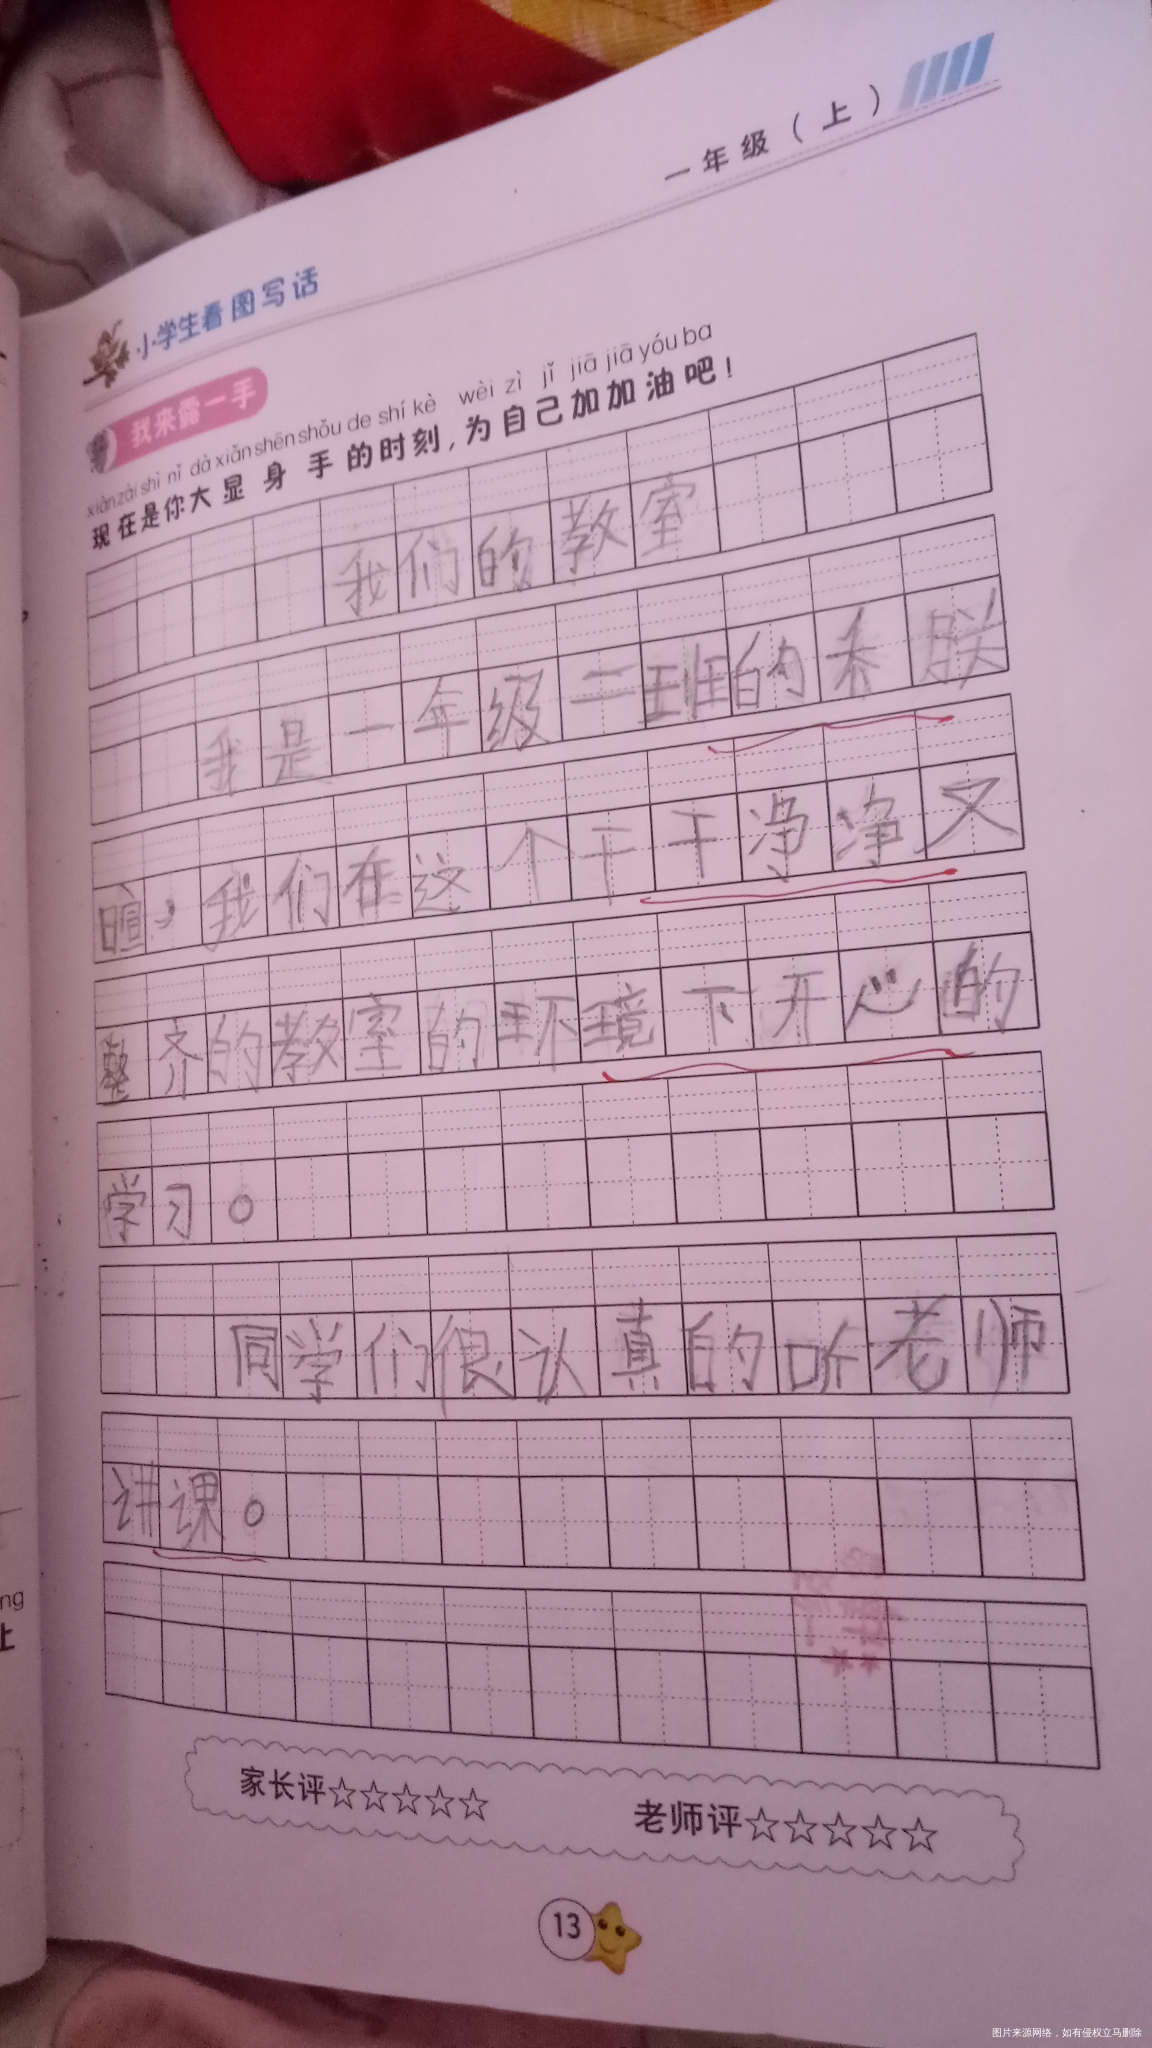 一年级（上）
小学生看图写话
我来露一手
xiàn zài shì nǐ dà xiǎn shēn shǒu de shí kè wèi zì jǐ jiā jiā yóu ba
现在是你大显身手的时刻，为自己加加油吧！
我们的教室
我是一年级二班的秦朕
暄，我们在这个干干净净又
整齐的教室的环境下开心的
学习。
同学们很认真的听老师
讲课。
家长评☆☆☆☆☆ 老师评☆☆☆☆☆
13
ng
上
图片来源网络，如有侵权立马删除